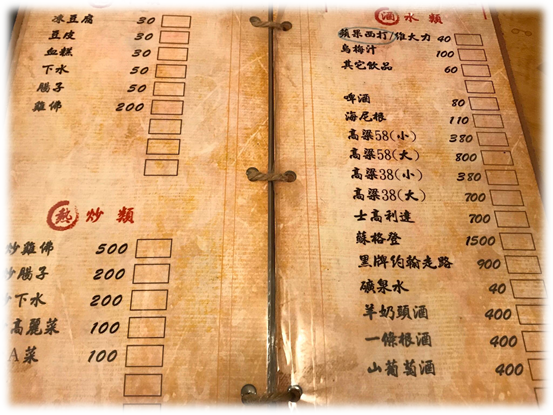 冰豆腐 30
豆皮 30
血糕 30
下水 50
腸子 50
雞佛 200
熱炒類
炒雞佛 500
炒腸子 200
炒下水 200
高麗菜 100
A菜 100
酒水類
蘋果西打/維大力 40
烏梅汁 100
其它飲品 60
啤酒 80
海尼根 110
高梁58(小) 380
高梁58(大) 800
高梁38(小) 380
高梁38(大) 700
士高利達 700
蘇格登 1500
黑牌約翰走路 900
礦泉水 40
羊奶頭酒 400
一條根酒 400
山葡萄酒 400